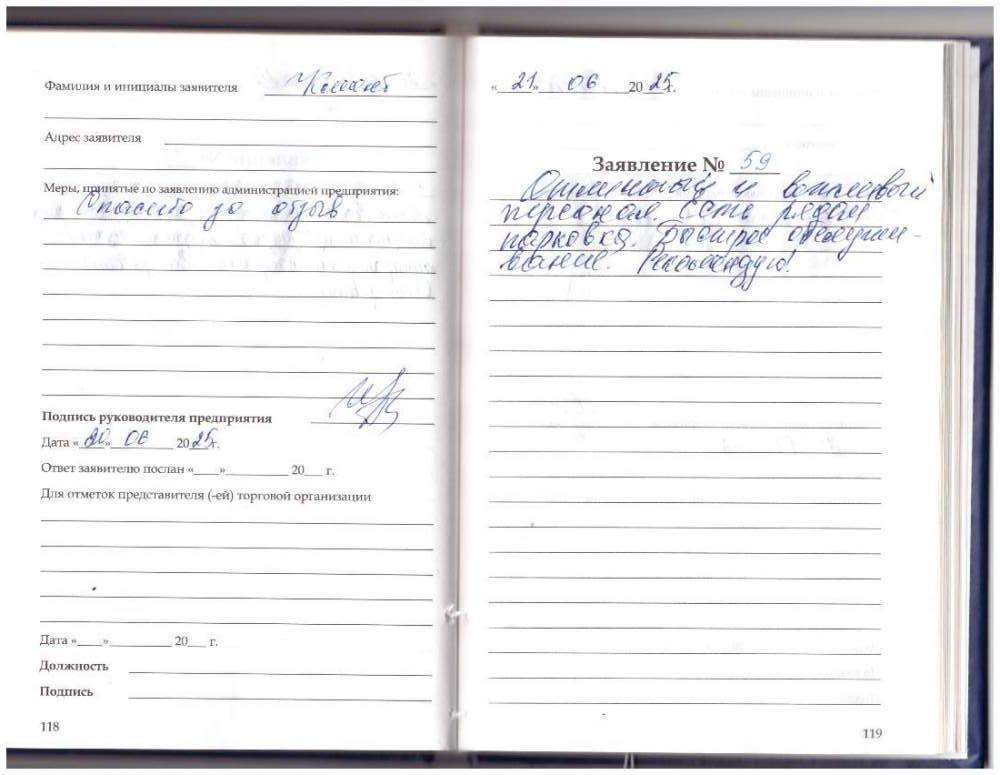 Фамилия и инициалы заявителя
Адрес заявителя
Меры, принятые по заявлению администрацией предприятия:
Спасибо за отзыв.
Подпись руководителя предприятия
Дата «20» 06 2025г.
Ответ заявителю послан «___»__________ 20___ г.
Для отметок представителя (-ей) торговой организации
Дата «____»__________ 20___ г.
Должность
Подпись
118
«21» 06 2025г.
Заявление № 59
Отличный и вежливый
персонал. Есть рядом
парковка. Быстрое обслужи-
вание. Рекомендую!
119